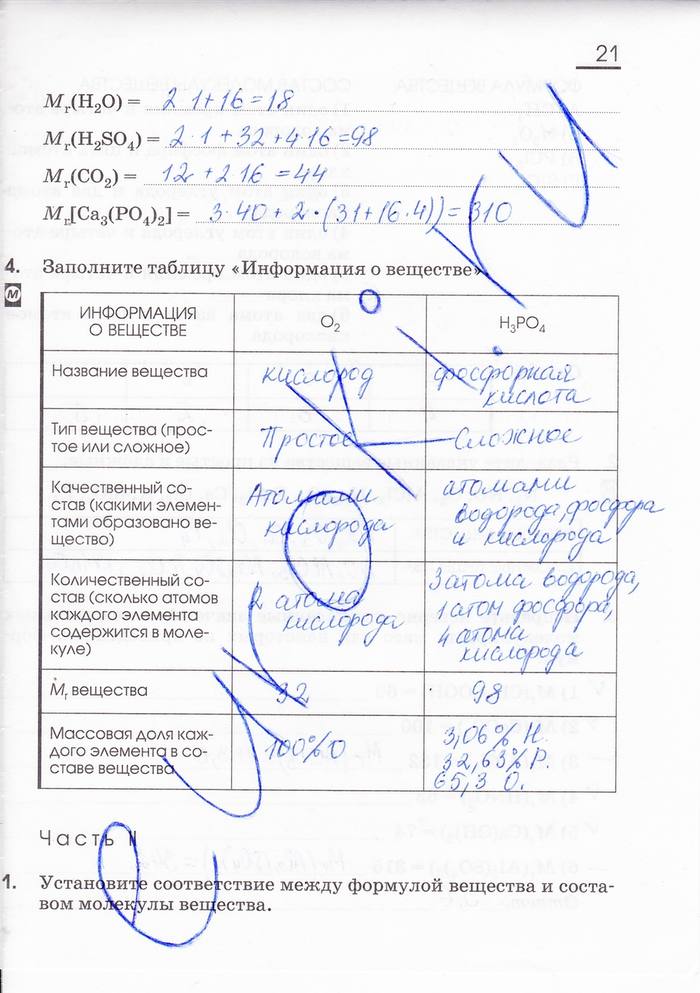 21
Mr(H2O) = 2·1+16=18
Mr(H2SO4) = 2·1+32+4·16=98
Mr(CO2) = 12+2·16=44
Mr[Ca3(PO4)2] = 3·40+2·(31+16·4))=310
4. Заполните таблицу «Информация о веществе»
М
ИНФОРМАЦИЯ
О ВЕЩЕСТВЕ
O2
H3PO4
Название вещества
кислород
фосфорная
кислота
Тип вещества (прос-
тое или сложное)
Простое
Сложное
Качественный со-
став (какими элемен-
тами образовано ве-
щество)
Атомами
кислорода
атомами
водорода, фосфора
и кислорода
Количественный со-
став (сколько атомов
каждого элемента
содержится в моле-
куле)
2 атома
кислорода
3 атома водорода,
1 атом фосфора,
4 атома
кислорода
Mr вещества
32
98
Массовая доля каж-
дого элемента в со-
ставе вещества
100% O
3,06% H.
32,63% P.
65,3 O.
Часть II
1. Установите соответствие между формулой вещества и соста-
вом молекулы вещества.